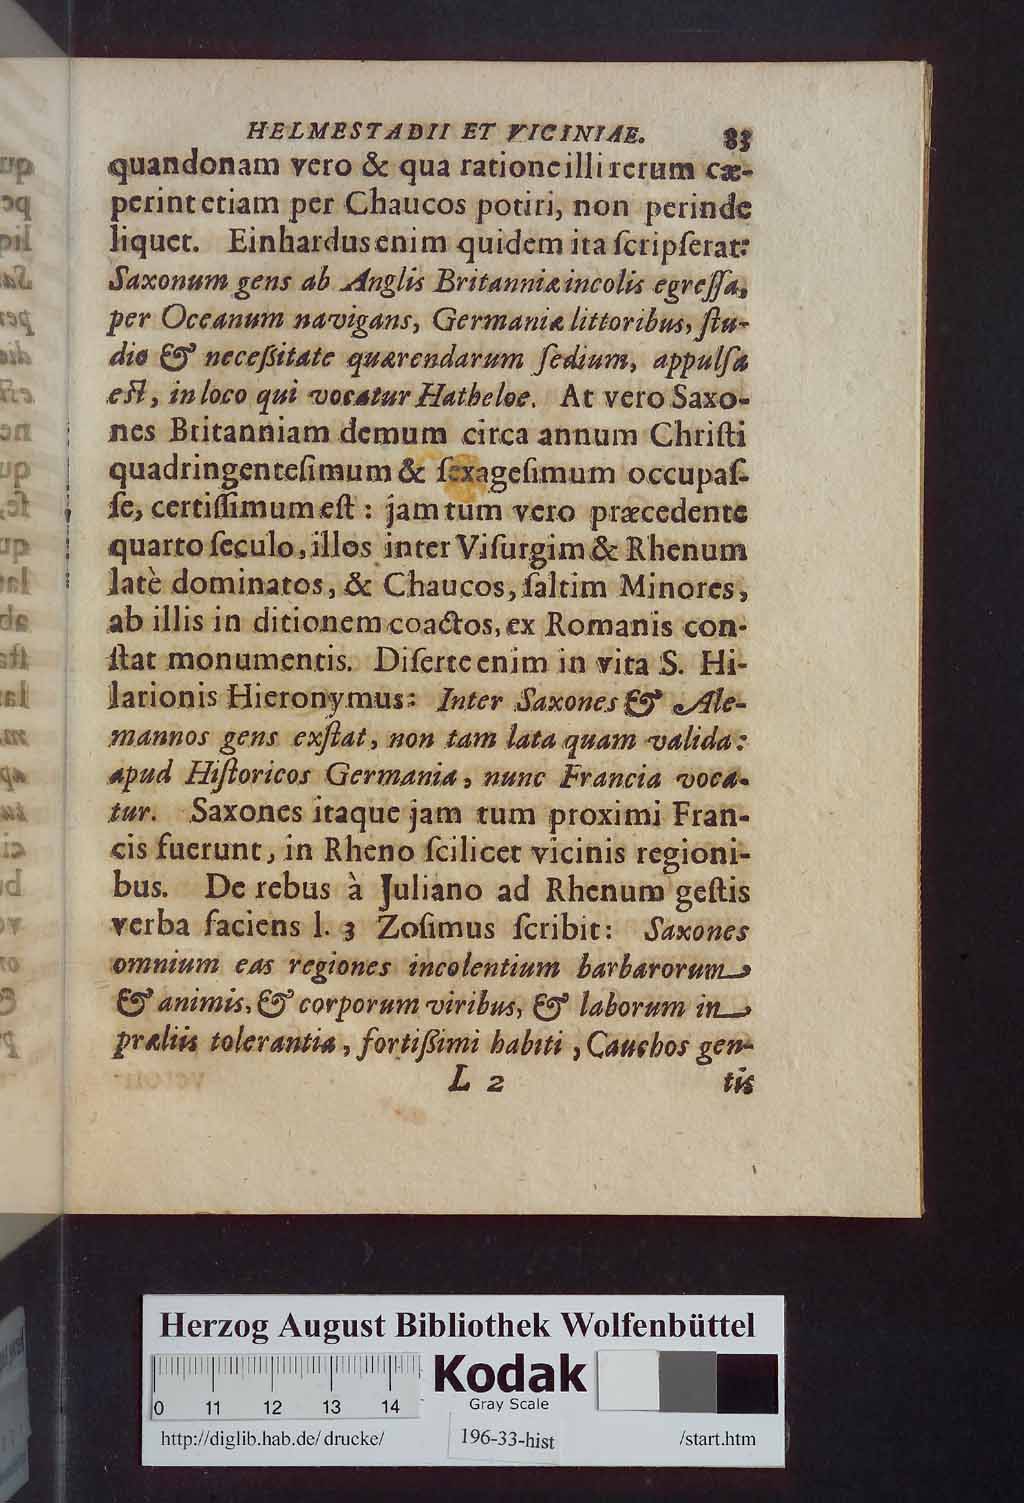 HELMESTADII ET VICINIAE. 83
quandonam vero & qua ratione illi rerum cæ-
perint etiam per Chaucos potiri, non perinde
liquet. Einhardus enim quidem ita ſcripſerat:
Saxonum gens ab Anglis Britanniæ incolis egreſſa,
per Oceanum navigans, Germaniæ littoribus, ſtu-
dio & neceſsitate quærendarum ſedium, appulſa
eſt, in loco qui vocatur Hatheloe. At vero Saxo-
nes Britanniam demum circa annum Chriſti
quadringenteſimum & ſexageſimum occupaſ-
ſe, certiſſimum eſt : jam tum vero præcedente
quarto ſeculo, illos inter Viſurgim & Rhenum
latè dominatos, & Chaucos, ſaltim Minores,
ab illis in ditionem coactos, ex Romanis con-
ſtat monumentis. Diſerte enim in vita S. Hi-
larionis Hieronymus: Inter Saxones & Ale-
mannos gens exſtat, non tam lata quam valida:
apud Hiſtoricos Germania, nunc Francia voca-
tur. Saxones itaque jam tum proximi Fran-
cis fuerunt, in Rheno ſcilicet vicinis regioni-
bus. De rebus à Juliano ad Rhenum geſtis
verba faciens l. 3 Zoſimus ſcribit: Saxones
omnium eas regiones incolentium barbarorum,
& animis, & corporum viribus, & laborum in
præliis tolerantia, fortiſsimi habiti, Cauchos gen-
L 2 tis
Herzog August Bibliothek Wolfenbüttel
Kodak
Gray Scale
0 11 12 13 14
http://diglib.hab.de/drucke/ 196-33-hist /start.htm